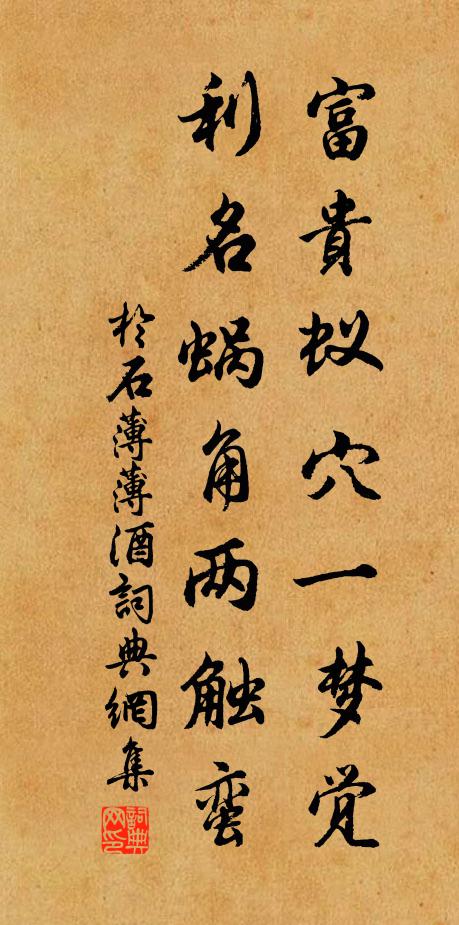 富貴蚁穴一梦觉
利名蜗角两触蛮
於石薄薄酒詞典網集
詞典网印